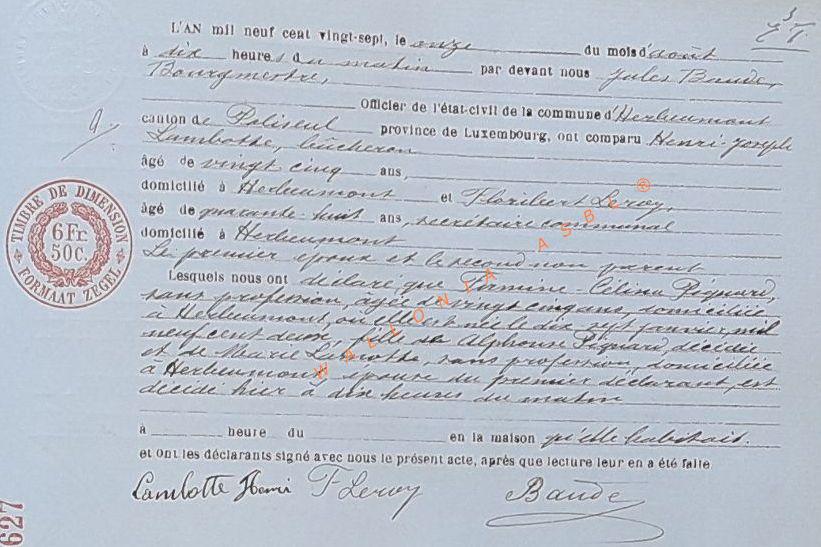 L'AN mil neuf cent vingt-sept, le onze du mois d'août
à dix heures du matin par devant nous Jules Baude,
Bourgmestre,
Officier de l'état-civil de la commune d'Herbeumont
canton de Paliseul province de Luxembourg, ont comparu Henri-Joseph
Lambotte, bûcheron
âgé de vingt cinq ans,
domicilié à Herbeumont et Floribert Leroy,
âgé de quarante-huit ans, secrétaire communal
domicilié à Herbeumont
Le premier époux et le second non parent
Lesquels nous ont déclaré que Firmine-Célina Pignard,
sans profession, agée de vingt cinq ans, domiciliée
à Herbeumont, où elle est née le dix sept janvier mil
neuf cent deux, fille de Alphonse Pignard, décédé
et de Marie Lamotte, sans profession, domiciliée
à Herbeumont, épouse du premier déclarant, est
décédé hier à dix heures du matin
à heure du en la maison qu'elle habitait.
et ont les déclarants signé avec nous le présent acte, après que lecture leur en a été faite
Lambotte Henri F Leroy Baude
TIMBRE DE DIMENSION
6 Fr.
50C.
FORMAAT ZEGEL
627
WALLONIA ASBL ®